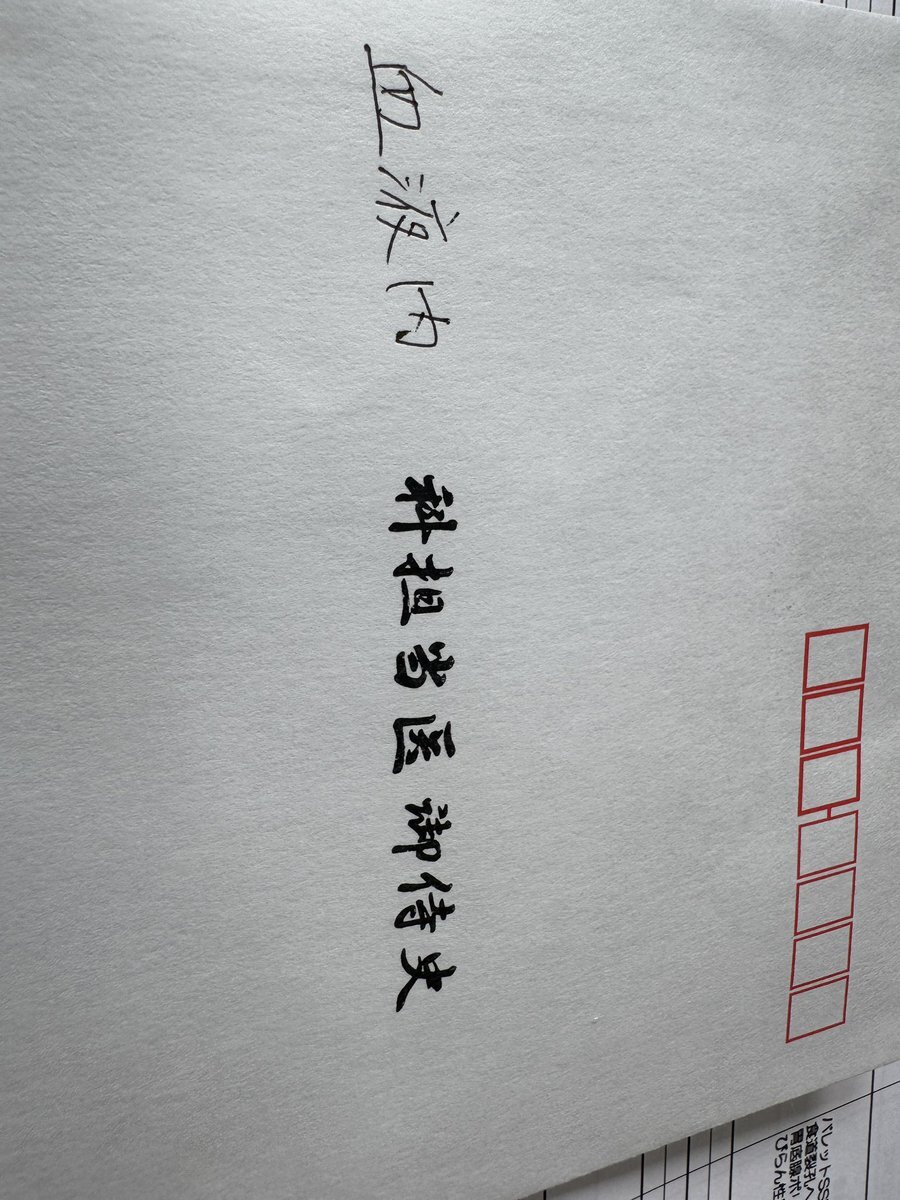 血液内 科担当医 御侍史
バレットSS
食道裂孔ヘ
胃底腺ポ
びらん性